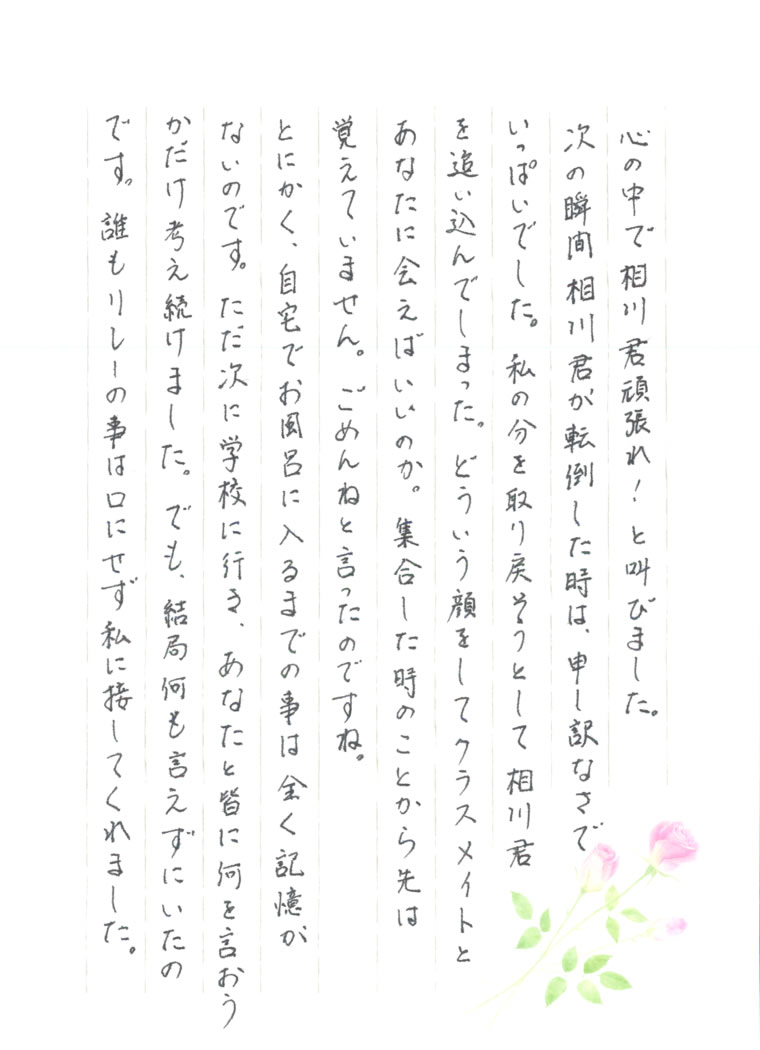 心の中で相川君頑張れ！と叫びました。
次の瞬間相川君が転倒した時は、申し訳なさで
いっぱいでした。私の分を取り戻そうとして相川君
を追い込んでしまった。どういう顔をしてクラスメイトと
あなたに会えばいいのか。集合した時のことから先は
覚えていません。ごめんねと言ったのですね。
とにかく、自宅でお風呂に入るまでの事は全く記憶が
ないのです。ただ次に学校に行き、あなたと皆に何を言おう
かだけ考え続けました。でも、結局何も言えずにいたの
です。誰もリレーの事は口にせず私に接してくれました。